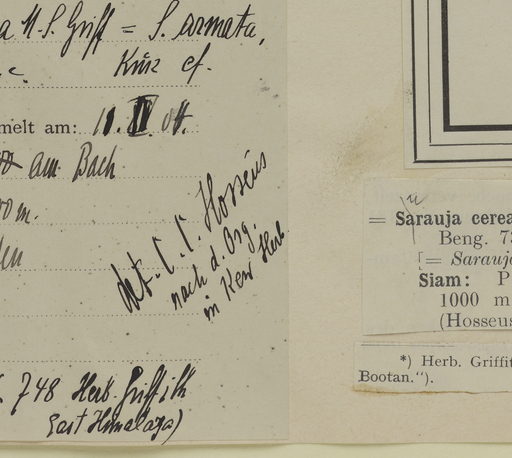 a M.S. Griff = S. armata,
c. Kurz cf.
melt am: 11. II. 04.
am Bach
00 m.
det. C. C. Hosseus
nach d. Org.
in Kew Herb
748 Herb Griffith
East Himalaya)
= Sarauja cerea
Beng. 73
[= Sarauja
Siam: P
1000 m
(Hosseus
*) Herb. Griffit
Bootan.").